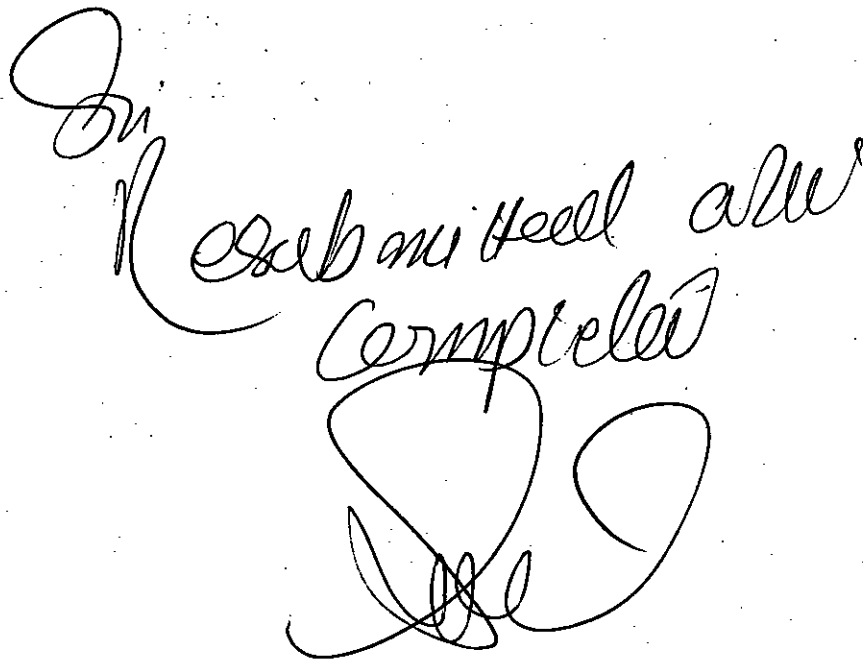 Sir
Resubmitted after
Completion